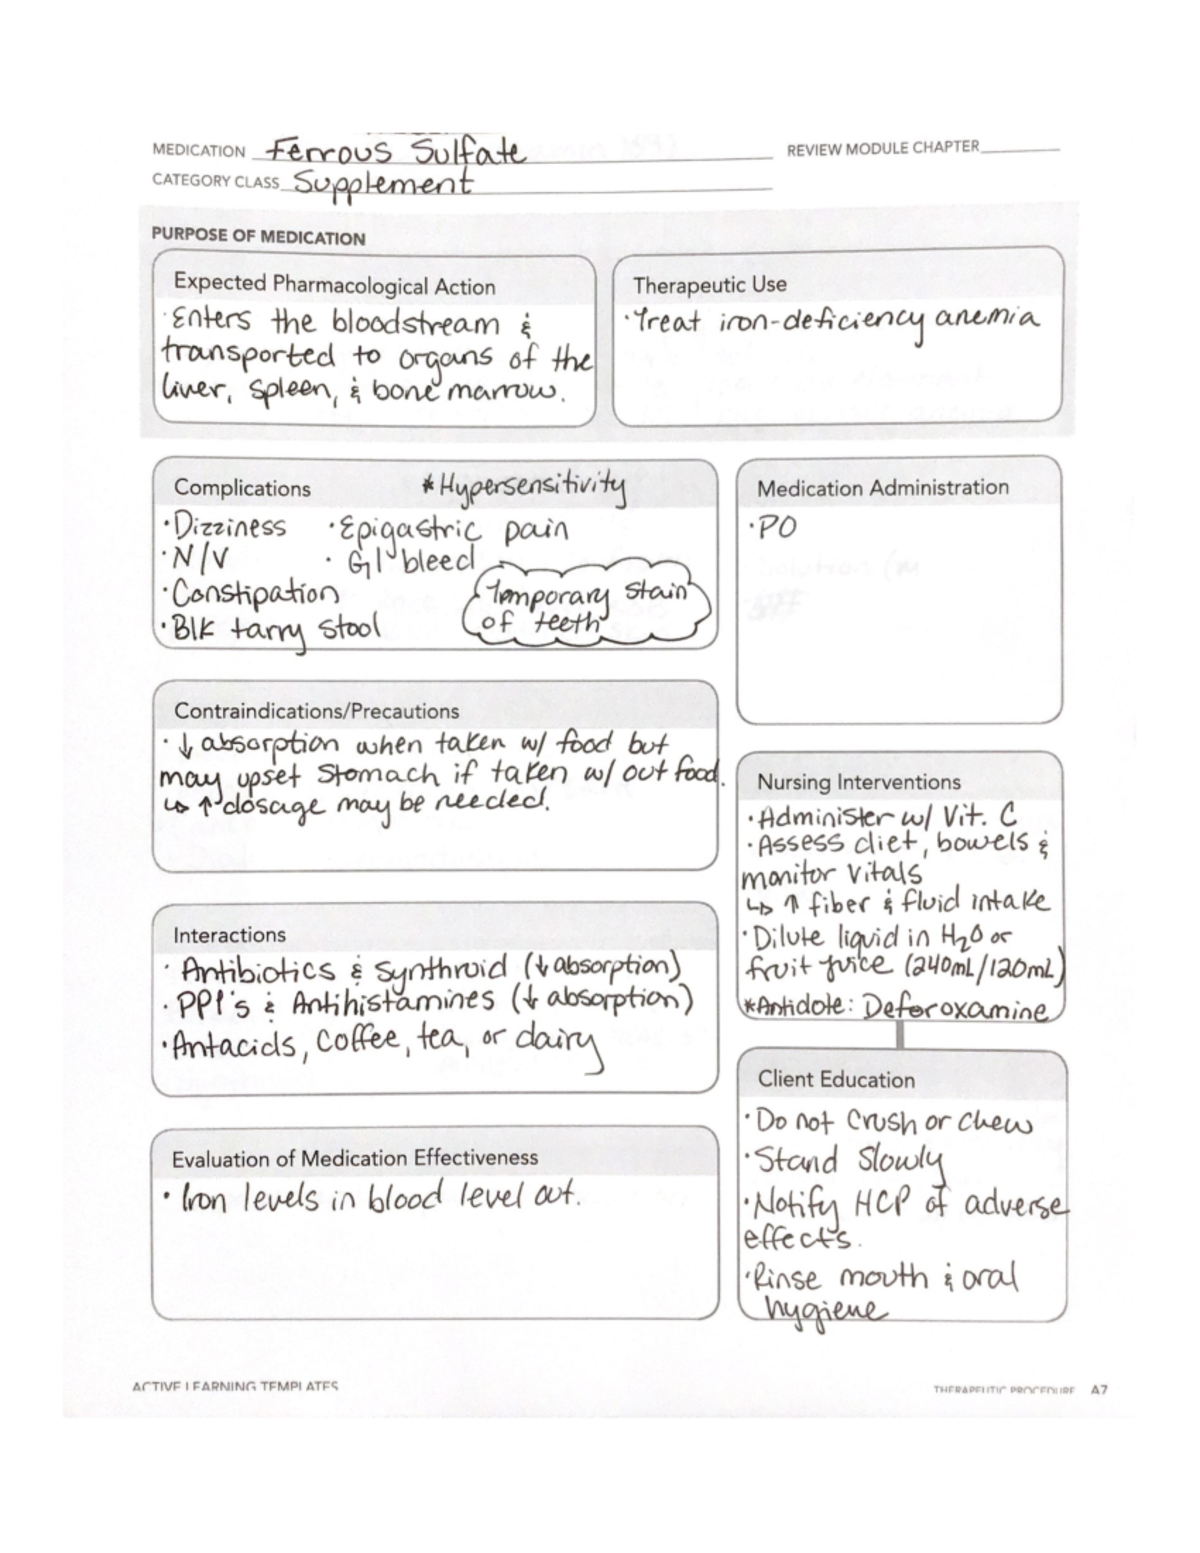 MEDICATION Ferrous Sulfate REVIEW MODULE CHAPTER
CATEGORY CLASS Supplement
PURPOSE OF MEDICATION
Expected Pharmacological Action
·Enters the bloodstream &
transported to organs of the
liver, spleen, & bone marrow.
Therapeutic Use
·Treat iron-deficiency anemia
Complications *Hypersensitivity
·Dizziness ·Epigastric pain
·N/V · GI bleed
·Constipation
·Blk tarry stool
Temporary stain
of teeth
Medication Administration
·PO
Contraindications/Precautions
· ↓ absorption when taken w/ food but
may upset stomach if taken w/out food.
↳ ↑ dosage may be needed.
Interactions
· Antibiotics & Synthroid (↓ absorption)
· PPI's & Antihistamines (↓ absorption)
·Antacids, coffee, tea, or dairy
Evaluation of Medication Effectiveness
· Iron levels in blood level out.
Nursing Interventions
·Administer w/ Vit. C
·Assess diet, bowels &
monitor vitals
↳ ↑ fiber & fluid intake
·Dilute liquid in H2O or
fruit juice (240mL/120mL)
*Antidote: Deferoxamine
Client Education
·Do not crush or chew
·Stand slowly
·Notify HCP of adverse
effects.
·Rinse mouth & oral
hygiene
ACTIVE LEARNING TEMPLATES
THERAPEUTIC PROCEDURE A7